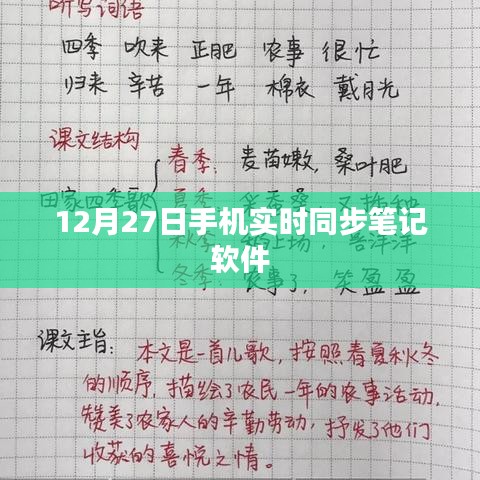 听写词语
四季 吹来 正肥 农事 很忙
归来 辛苦 一年 棉衣 戴月光
课文结构
春季：麦苗嫩，桑叶肥
田家四季歌
12月27日手机实时同步笔记
软件
冬季：农事了，笑盈盈
课文主旨：本文是一首儿歌，按照春夏秋冬
的顺序，描绘了农民一年的农事活动，
赞美了农家人的辛勤劳动，抒发了他们
收获的喜悦之情。